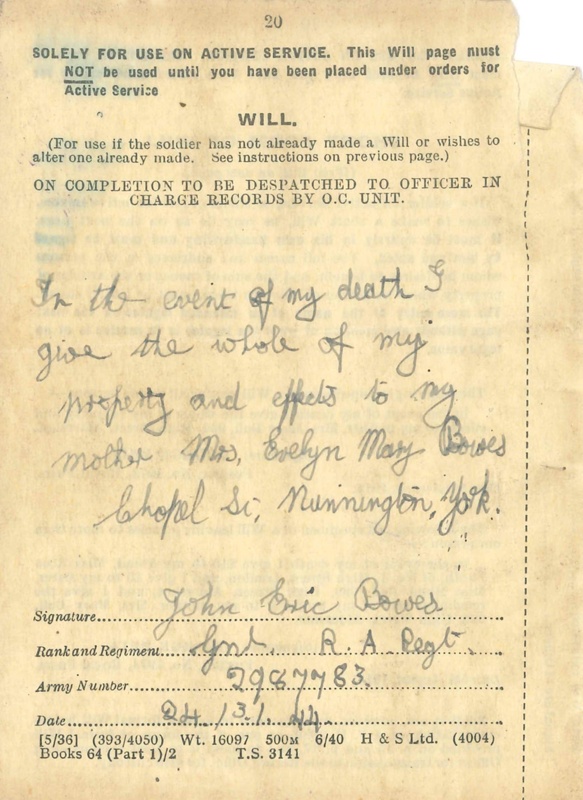 20
SOLELY FOR USE ON ACTIVE SERVICE. This Will page must
NOT be used until you have been placed under orders for
Active Service
WILL.
(For use if the soldier has not already made a Will or wishes to
alter one already made. See instructions on previous page.)
ON COMPLETION TO BE DESPATCHED TO OFFICER IN
CHARGE RECORDS BY O.C. UNIT.
In the event of my death I
give the whole of my
property and effects to my
mother Mrs. Evelyn Mary Bowes
Chapel St, Nunnington, York.
Signature John Eric Bowes
Rank and Regiment Gnr. R. A. Regt.
Army Number 2987783.
Date 24/3/44.
[5/36] (393/4050) Wt. 16097 500M 6/40 H & S Ltd. (4004)
Books 64 (Part 1)/2 T.S. 3141